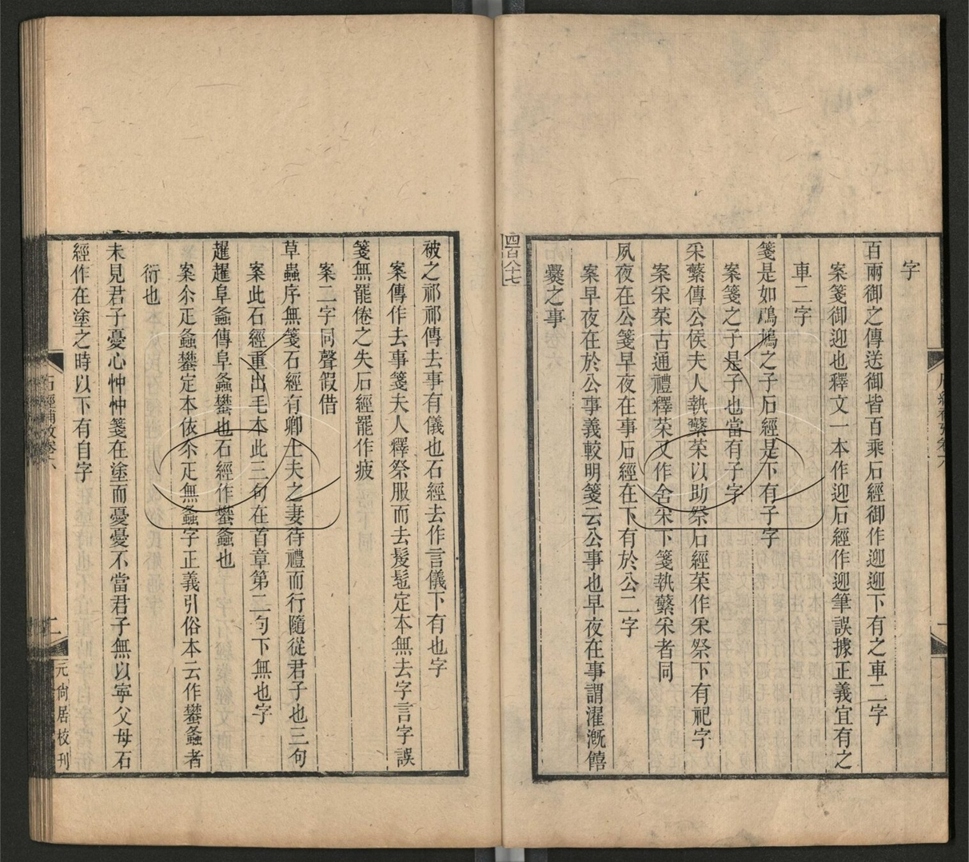 字
百兩御之傳送御皆百乘石經御作迎迎下有之車二字
案箋御迎也釋文一本作迎石經作迎筆誤據正義宜有之
車二字
箋是如鳲鳩之子石經是下有子字
案箋之子是子也當有子字
采蘩傳公侯夫人執蘩菜以助祭石經菜作采祭下有祀字
案采菜古通禮釋菜又作舍采下箋執蘩采者同
夙夜在公箋早夜在事石經在下有於公二字
案早夜在於公事義較明箋云公事也早夜在事謂濯漑饎
爨之事
四百八十七
被之祁祁傳去事有儀也石經去作言儀下有也字
案傳作去事箋夫人釋祭服而去髲髢定本無去字言字誤
箋無罷倦之失石經罷作疲
案二字同聲假借
草蟲序無箋石經有卿士夫之妻待禮而行隨從君子也三句
案此石經重出毛本此三句在首章第二句下無也字
趯趯阜螽傳阜螽蠜也石經作蠜螽也
案尒疋螽蠜定本依尒疋無螽字正義引俗本云作蠜螽者
衍也
未見君子憂心忡忡箋在塗而憂憂不當君子無以寧父母石
經作在塗之時以下有自字
石經補攷卷六
二
元尙居校刊